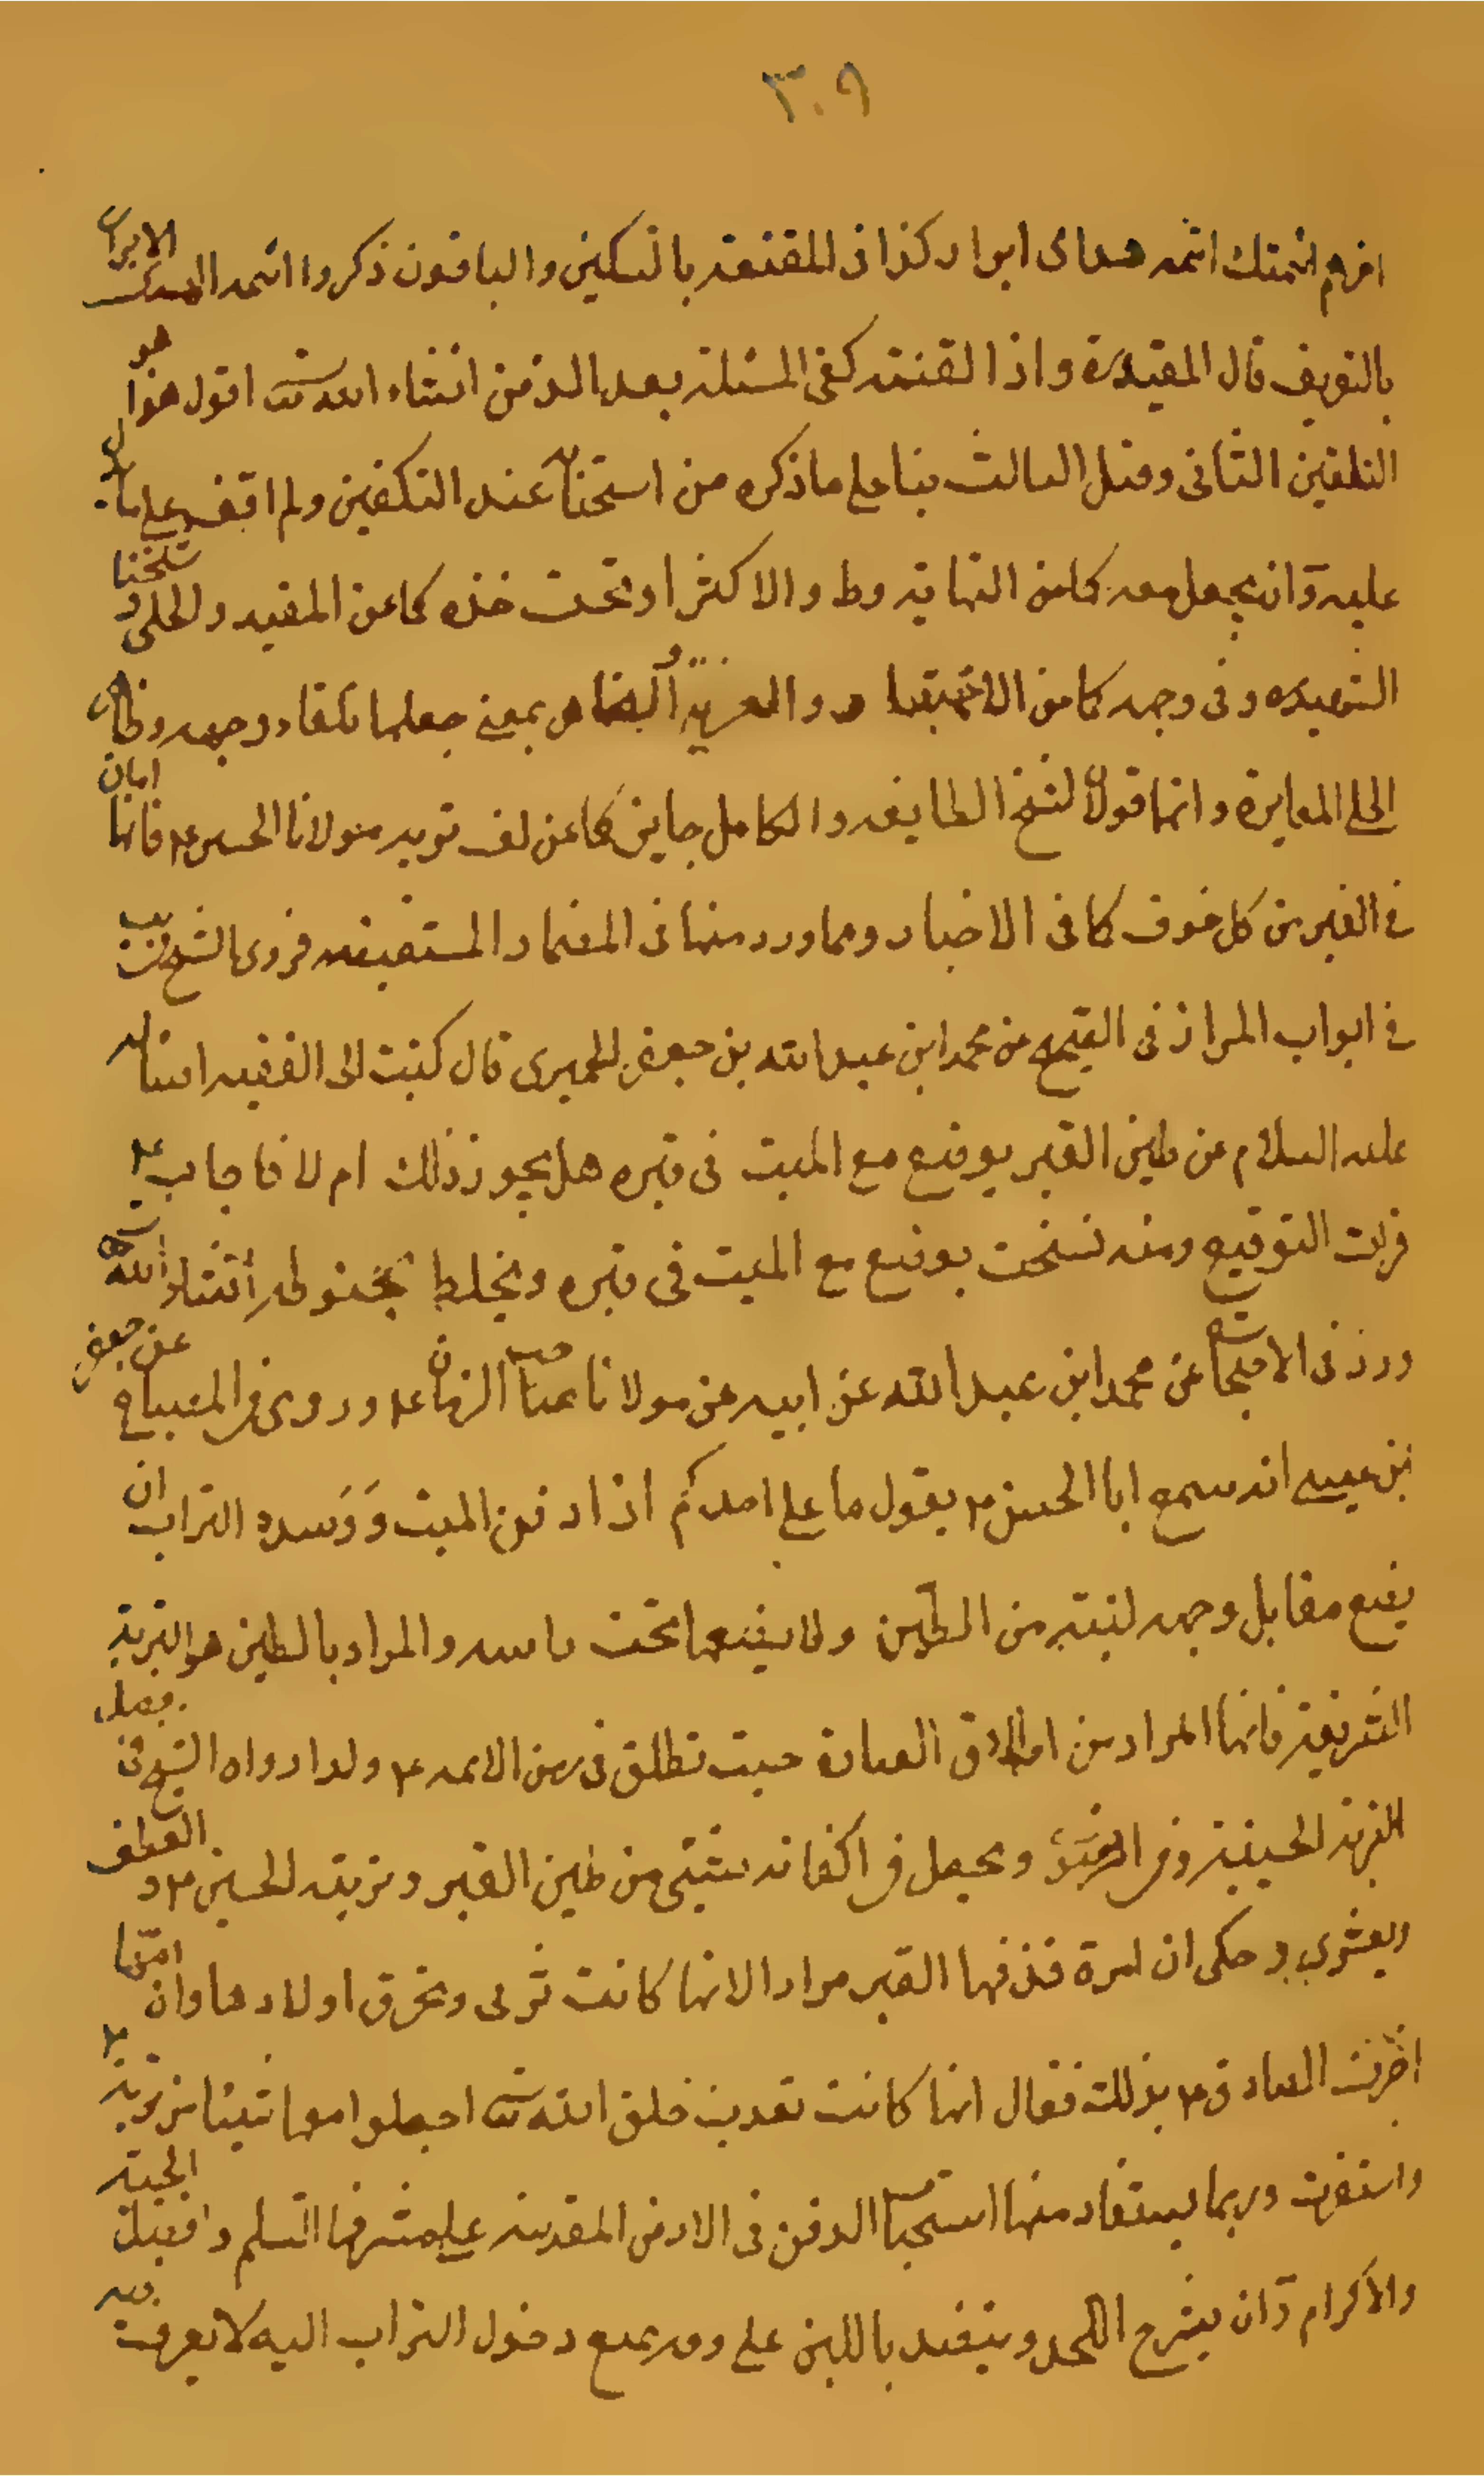 ٣٠٩
ائمتك ائمه هدى ابرار كذا فى المقنعة بالتسكين والباقون ذكروا ائمه الهدى الابرار
بالتعريف قال المفيد ره واذا لقنته كفى المسئلة بعد الدفن انشاء الله تعالى اقول هذا هو
التلقين الثانى وقبل الثالث بناء على ما ذكره من استحبابه عند التكفين ولم اقف على
عليه وان يجعل معه كما من النهاية وط والاكثر او تحت خده كما عن المفيد والحلى و
الشهيد ره وفى وجهه كما من الاقتصاد و بمعنى جعلها تلقاء وجهه
الحلى المغايرة وانها قولان لشيخ الطايفه والكل جايز كما عن لف تربه مولانا الحسين ع فانها امان
فى القبر من كل خوف كما فى الاخبار ومما ورد منها فى المضمار المستفيضه فروى الشيخ فى يب
فى ابواب المزار فى الصحيح عن محمد ابن عبد الله بن جعفر الحميرى قال كتبت الى الفقيه اسئله
عليه السلام عن طين القبر يوضع مع الميت فى قبره هل يجوز ذلك ام لا فاجاب ع
قرات التوقيع ومنه نسخت يوضع مع الميت فى قبره ويخلط بحنوطه انشاء الله تعالى
ورد فى الاحتجاج عن محمد ابن عبد الله عن ابيه عن مولانا صاحب الزمان ع وروى فى المصباح عن جعفر
بن عيسى انه سمع ابا الحسن ع يقول ما على احدكم اذا دفن الميت ووسده التراب ان
يضع مقابل وجهه لبنة من الطين ولا يضعها تحت راسه والمراد بالطين هو التربة
الشريفة فانها المراد من اطلاق العبارة حيث تطلق فى زمن الائمه ع ولذا رواه الشيخ فى فضل
التربة الحسينية وفى الرضوى ويجعل فى اكفانه شيئى من طين القبر وتربة الحسين ع و العطف
وحكى ان امرة قذفها القبر مرارا لانها كانت تزنى وتحرق اولادها وان امّها
اخبرت الصادق ع بذلك فقال انها كانت تعذب خلق الله تعالى اجعلوا معها شيئا من تربة
واستقرت وربما يستفاد منها استحباب الدفن فى الارض المقدسه على مشرفها السلم وافضل التحية
والاكرام وان يشرج اللحد وينضد باللبن على وجه يمنع دخول التراب اليه لا يعرف فيه